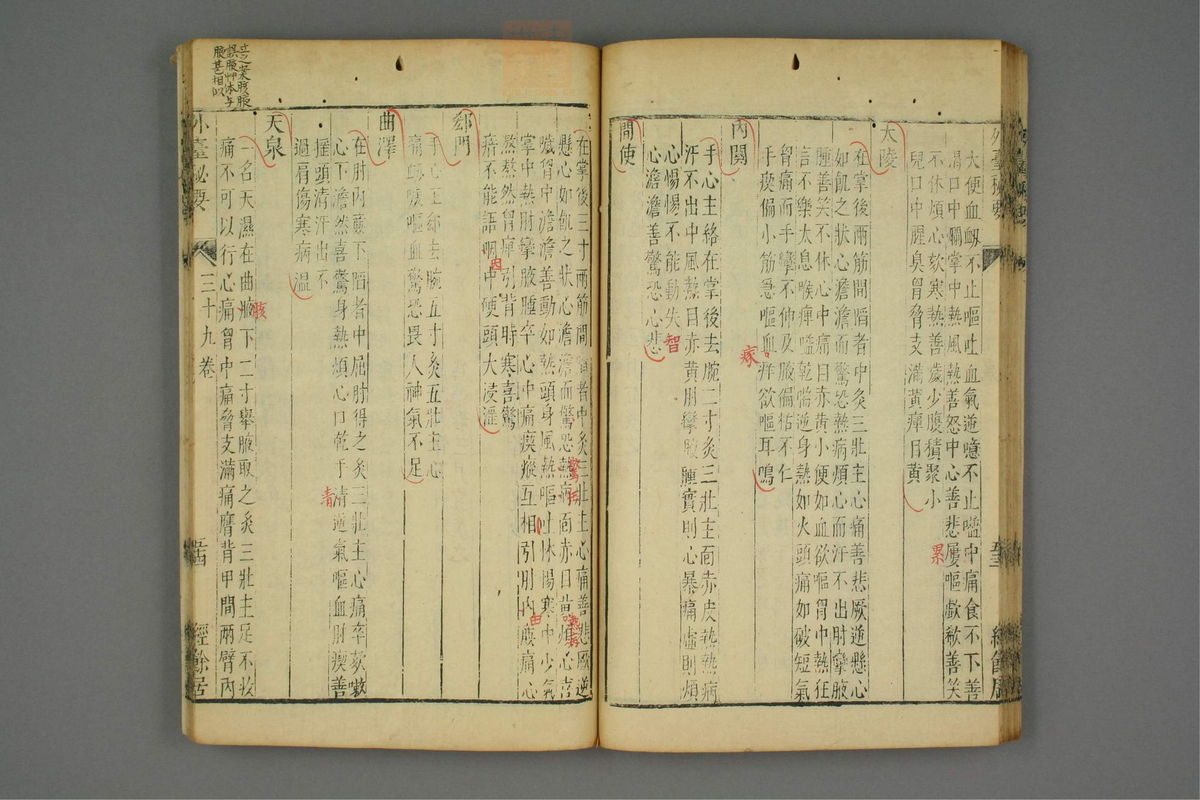 大便血衂不止嘔吐血氣逆噫不止嗌中痛食不下善
渴口中爛掌中熱風熱善怒中心善悲屢嘔歔欷善笑
不休煩心欬寒熱善歲少腹積聚小
兒口中腥臭胷脅支滿黃癉目黃
大陵
在掌後兩筋間䧟者中灸三壯主心痛善悲厥逆懸心
如飢之狀心澹澹而驚恐熱病煩心而汗不出肘攣腋
腫善笑不休心中痛目赤黃小便如血欲嘔胷中熱狂
言不樂太息喉痹嗌乾喘逆身熱如火頭痛如破短氣
胷痛而手攣不伸及腋偏枯不仁
手瘈偏小筋急嘔血痒欲嘔耳鳴
內關
手心主絡在掌後去腕二寸灸三壯主面赤皮熱熱病
汗不出中風熱目赤黃肘攣腋腫實則心暴痛虛則煩
心惕惕不能動失智
間使
心澹澹善驚恐心悲
在掌後三寸兩筋間䧟者中灸三壯主心痛善悲厥逆
懸心如飢之狀心澹澹而驚恐熱病面赤目黃煩心喜
噦胷中澹澹善動如熱頭身風熱嘔吐怵惕寒中少氣
掌中熱肘攣腋腫卒心中痛瘈瘲互相引肘內廉痛心
熬熬然胷痹引背時寒喜驚
瘖不能語咽中便頭大浸淫
郄門
手心主郄去腕五寸灸五壯主心
痛衂噦嘔血驚恐畏人神氣不足
曲澤
在肘內廉下䧟者中屈肘得之灸三壯主心痛卒欬嗽
心下澹然喜驚身熱煩心口乾手清逆氣嘔血肘瘈善
搖頭清汗出不
過肩傷寒病溫
天泉
一名天濕在曲腋下二寸舉腋取之灸三壯主足不收
痛不可以行心痛胷中痛脅支滿痛膺背甲間兩臂內
外臺秘要
三十九卷
經餘居